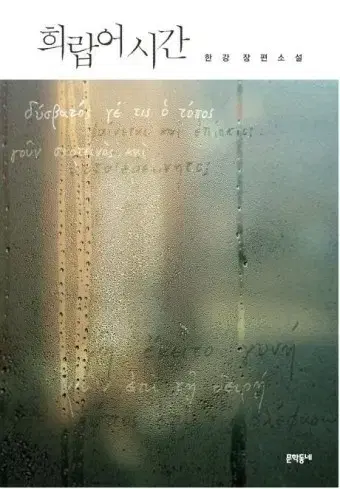 희랍어 시간
한강 장편소설
δύσβατός γέ τις ὁ τόπος
φαίνεται καὶ ἐπίσκιος
γοῦν σκοτεινὸς καὶ
ἔκειτο γυνή
ἐπὶ τῇ
문학동네